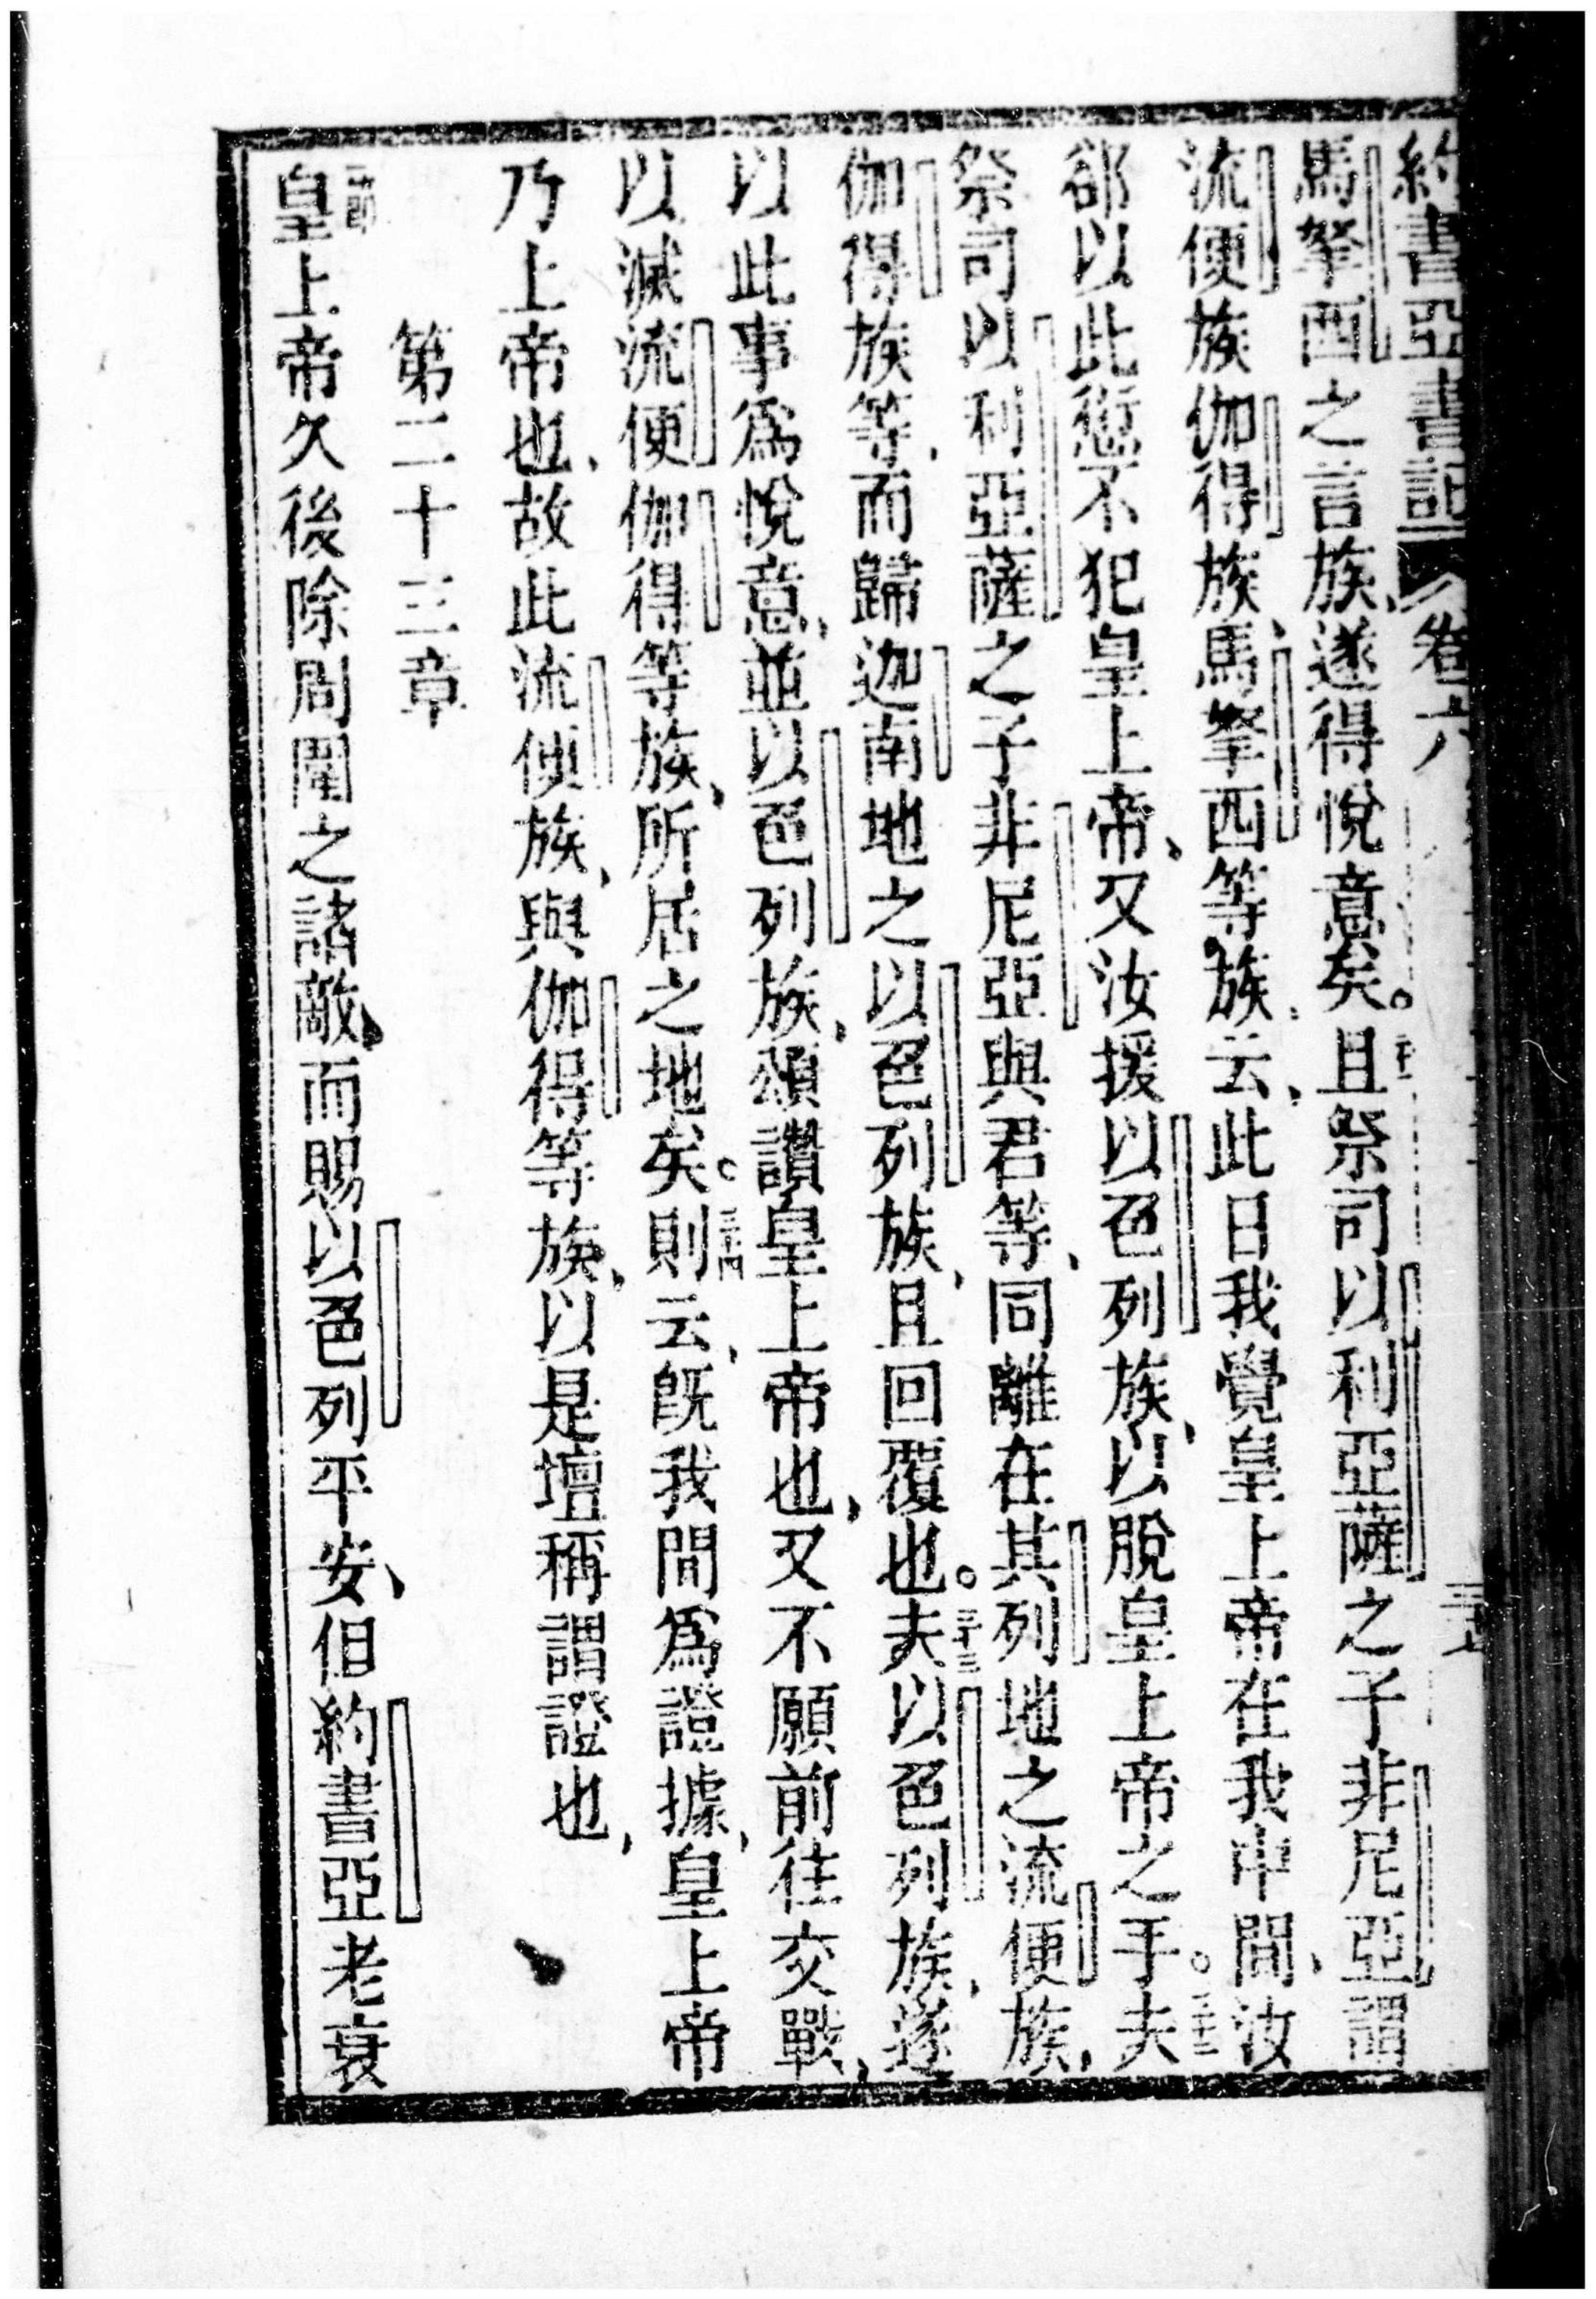 約書亞書記 卷六
馬拏西之言族、遂得悅意矣。且祭司以利亞薩之子非尼亞謂
流便族伽得族、馬拏西等族云、此日我覺皇上帝在我中間、汝
郤以此愆不犯皇上帝、又汝援以色列族、以脫皇上帝之手。夫
祭司以利亞薩之子非尼亞與君等、同離在其列地之流便族、
伽得族等、而歸迦南地之以色列族、且回覆也。三十三夫以色列族、遂
以此事爲悅意、並以色列族、頌讚皇上帝也、又不願前往交戰、
以滅流便伽得等族、所居之地矣。則云、旣我間爲證據、皇上帝
乃上帝也、故此流便族、與伽得等族、以是壇稱謂證也、
第二十三章
一節皇上帝久後除周圍之諸敵、而賜以色列平安、但約書亞老衰